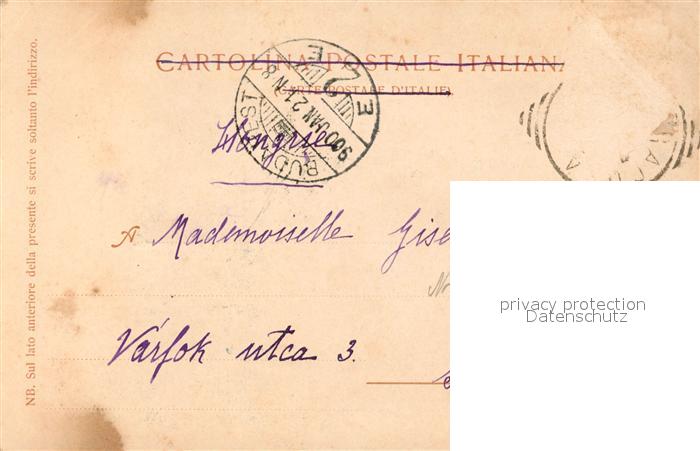 CARTOLINA POSTALE ITALIANA
(CARTE POSTALE D'ITALIE)
BUDAPEST
900 JAN 21 N 8
E 2 E
Hongrie
A Mademoiselle Gise
Várfok utca 3.
NB. Sul lato anteriore della presente si scrive soltanto l'indirizzo.
privacy protection
Datenschutz